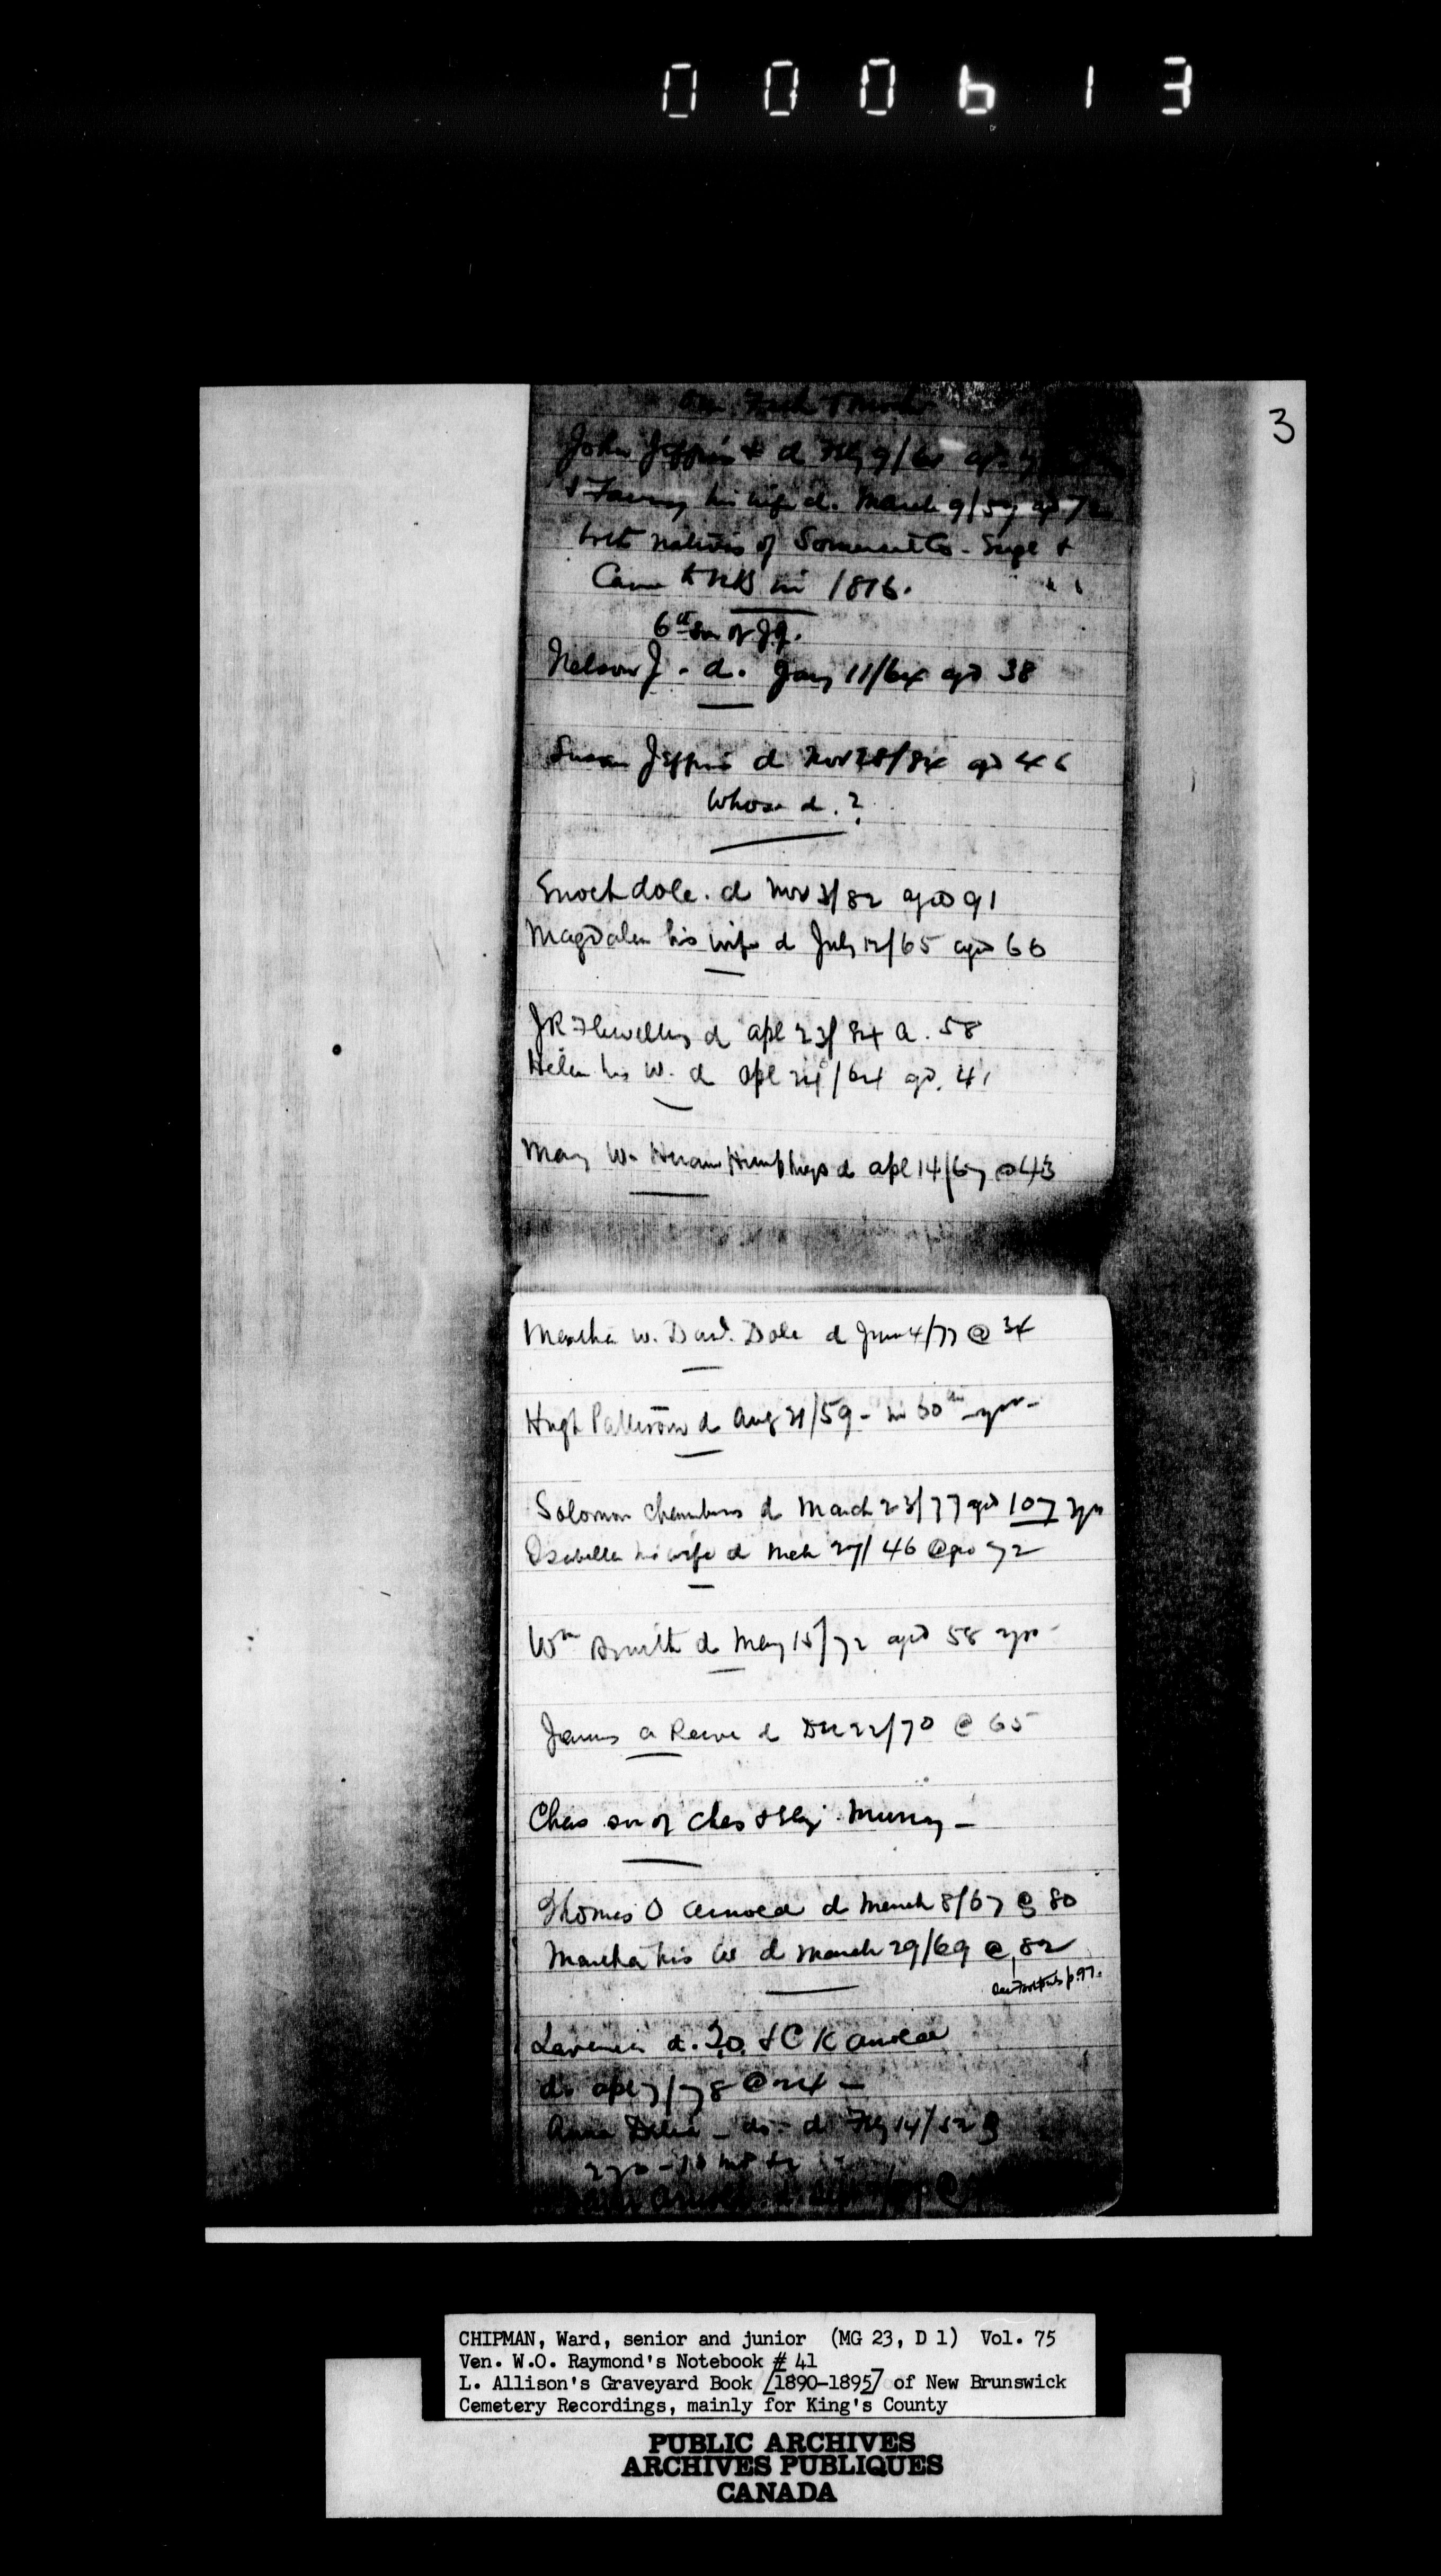 000613
3
John Jeffries + d Feby 9/6
& Fanny his wife d. March 9/59 agd 7
both natives of Somerset Co - Engl &
Came to NB in 1816.
6th son of Jf.
Nelson J - d. Jany 11/64 agd 38
Susan Jeffries d Nov 28/84 agd 46
Whose d.?
Enoch dole. d Nov 3/82 aged 91
Magdalen his wife d July 12/65 agd 66
JR Flewelling d apl 23/84 a. 58
Helen his W. d apl 24/64 agd. 41
Mary W. Hiram Humphreys d apl 14/67 @ 43
Martha w. Danl. Dole d June 4/77 @ 34
Hugh Patterson d Aug 21/59 - in 60th year -
Solomon Chambers d March 23/77 agd 107 yrs
Isabella his wife d Mch 27/46 @ 72
Wm Smith d May 15/72 aged 58 yrs -
James a Reeve d Dec 22/70 @ 65
Chas son of Chas & Eliz. Murray -
Thomas O Arnold d March 8/67 @ 80
Martha his W d March 29/69 @ 82
p. 97.
Lavenia d. T.O. & C K Arnold
do apl 7/78 @ 24 -
Anna Delia - do - d Feby 14/52 @
2 yrs - 10 mos
CHIPMAN, Ward, senior and junior (MG 23, D 1) Vol. 75
Ven. W.O. Raymond's Notebook # 41
L. Allison's Graveyard Book [1890-1895] of New Brunswick
Cemetery Recordings, mainly for King's County
PUBLIC ARCHIVES
ARCHIVES PUBLIQUES
CANADA